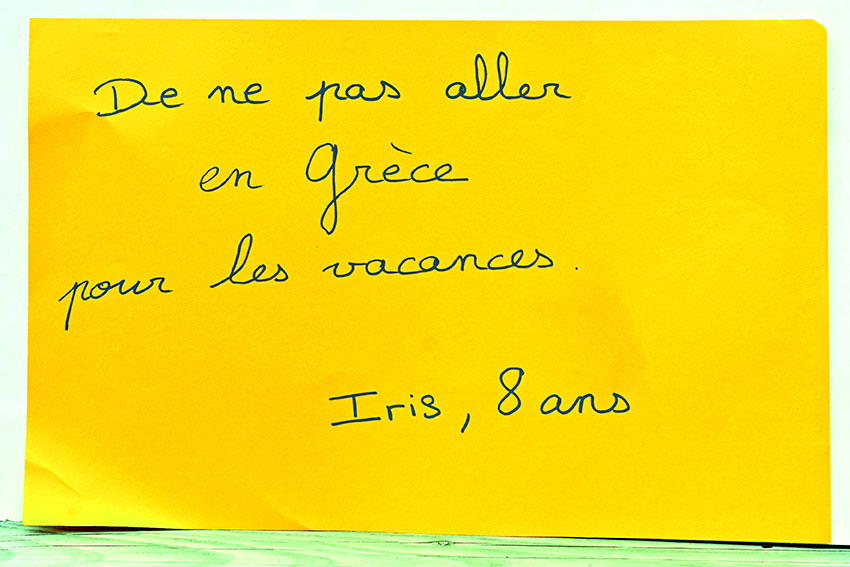 De ne pas aller
en Grèce
pour les vacances.
Iris, 8 ans